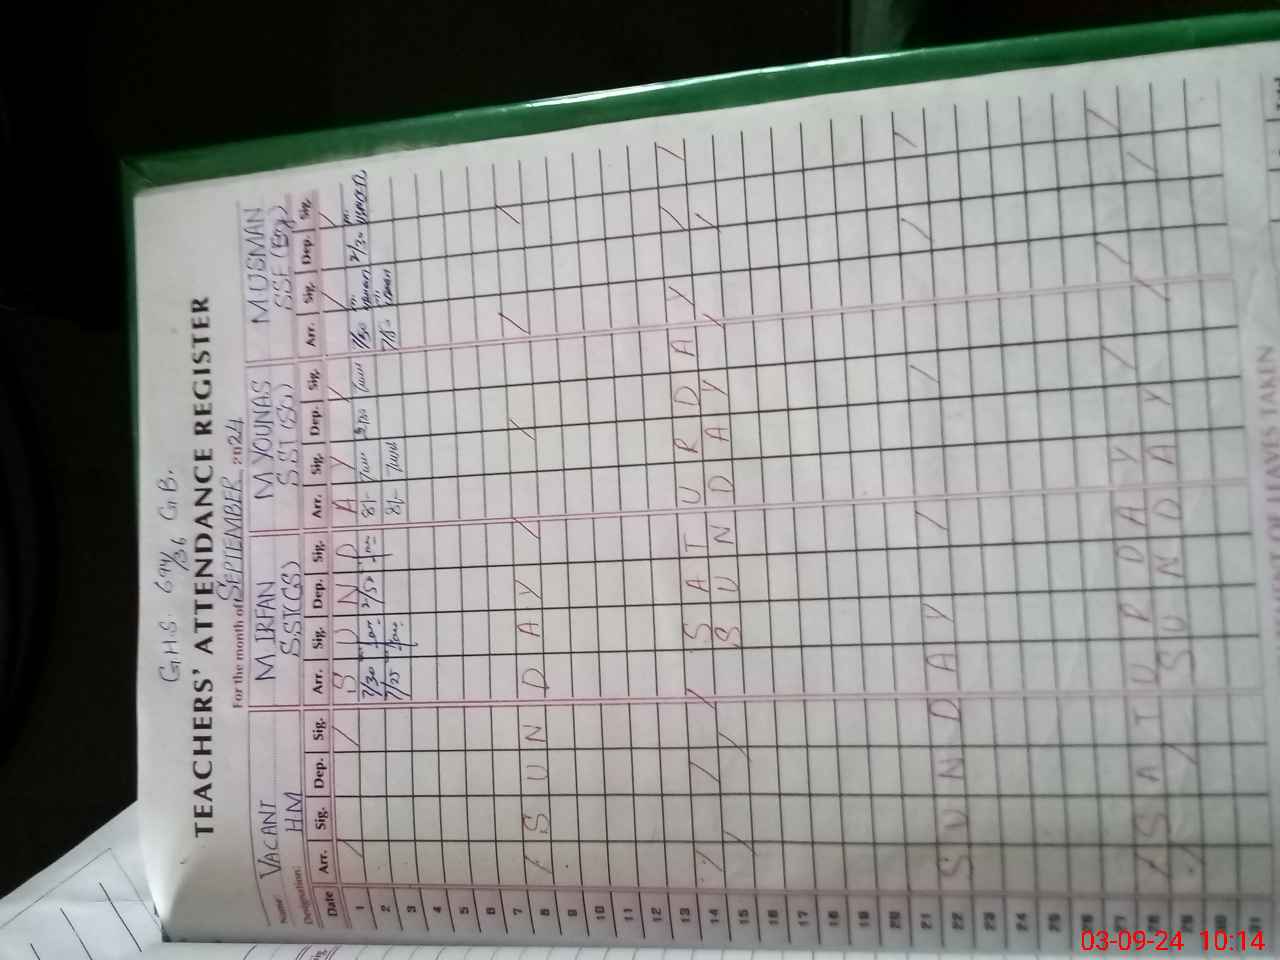 G.H.S. 694/36 G.B.
TEACHERS' ATTENDANCE REGISTER
For the month of SEPTEMBER 2024
Name VACANT M IRFAN M YOUNAS M USMAN
Designation HM SST(GS) SST(Sc) SSE(Eng)
Date Arr. Sig. Dep. Sig. Arr. Sig. Dep. Sig. Arr. Sig. Dep. Sig. Arr. Sig. Dep. Sig.
1 SUNDAY
2 7/30 2/30 8/- 7/30 2/30
3 7/25 8/-
4
5
6
7
8 SUNDAY
9
10
11
12
13
14 SATURDAY
15 SUNDAY
16
17
18
19
20
21
22 SUNDAY
23
24
25
26
27
28 SATURDAY
29 SUNDAY
30
31
OF LEAVES TAKEN
03-09-24 10:14